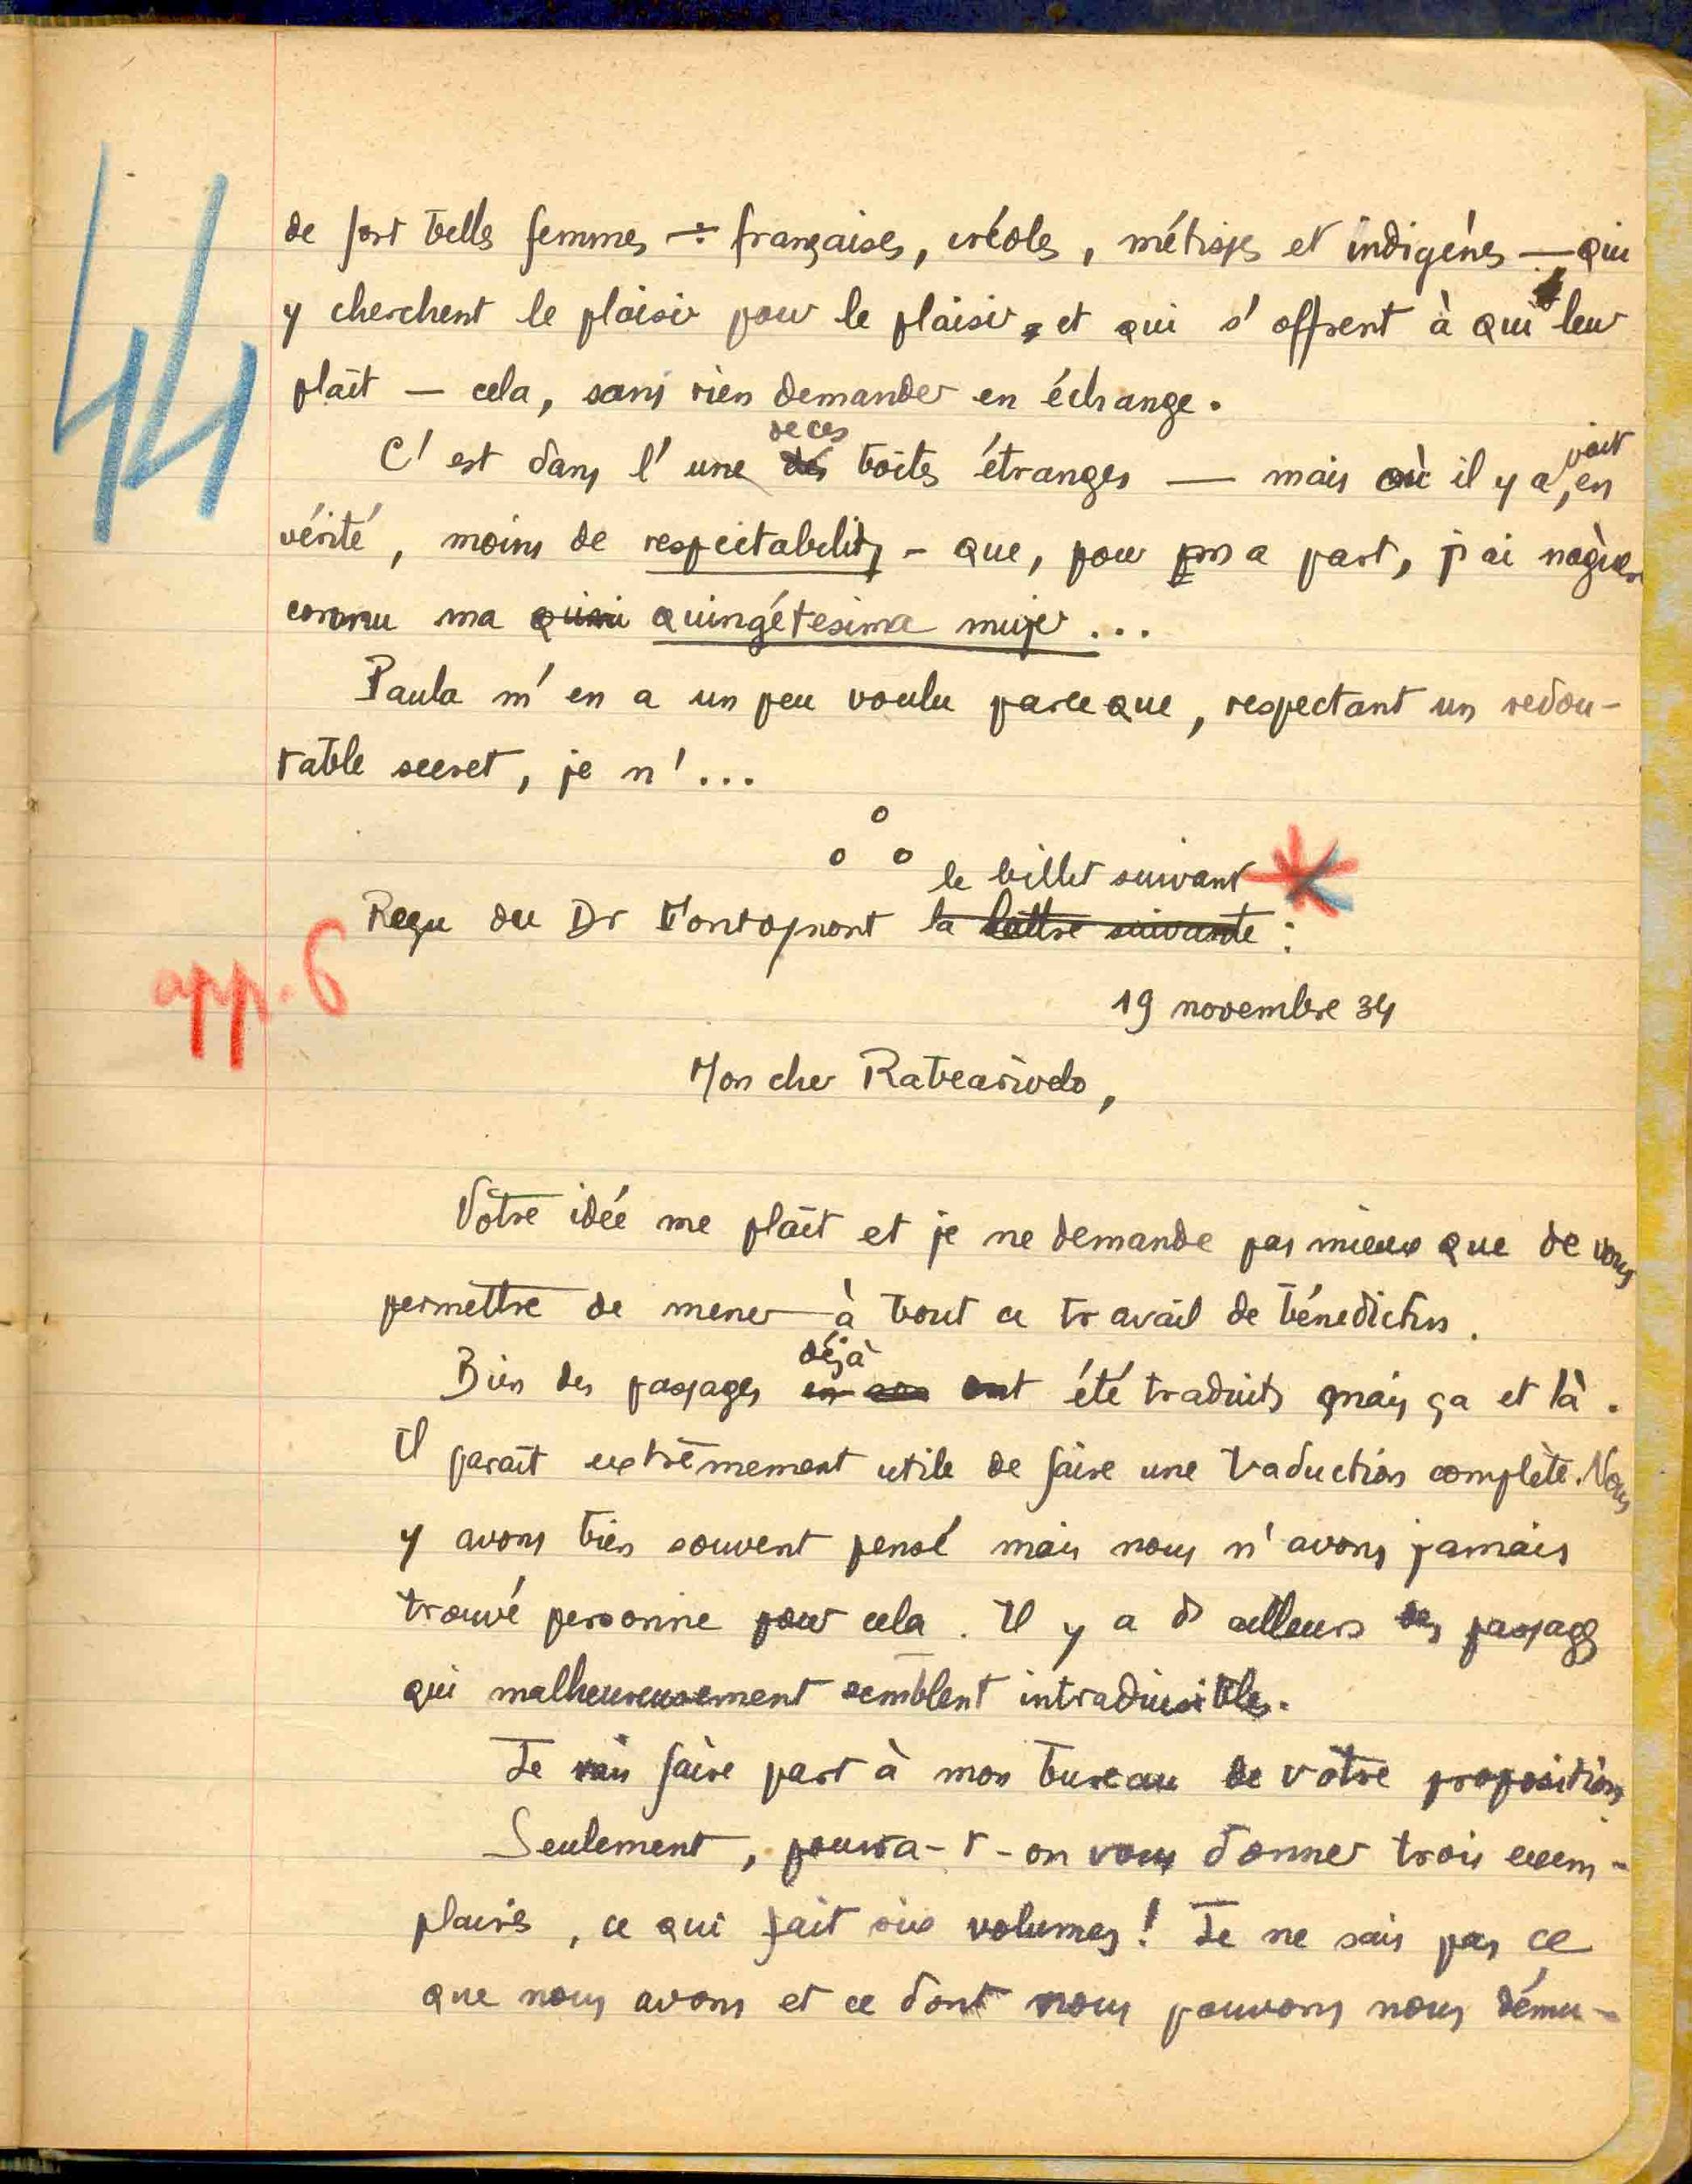 44
de fort belles femmes — françaises, créoles, métisses et indigènes — qui
y cherchent le plaisir pour le plaisir, et qui s'offrent à qui leur
plaît — cela, sans rien demander en échange.
de ces
C'est dans l'une des boîtes étranges — mais où il y a, en
vérité, moins de respectability — que, pour ma part, j'ai naguère
connu ma quini quingétesima mujer...
Paula m'en a un peu voulu parce que, respectant un redou-
table secret, je n'...
le billet suivant
Reçu du Dr Fontoynont la lettre suivante :
app. 6
19 novembre 34
Mon cher Rabearivelo,
Votre idée me plaît et je ne demande pas mieux que de vous
permettre de mener à bout ce travail de bénédictin.
déjà
Bien des passages ont été traduits mais ça et là.
Il paraît extrêmement utile de faire une traduction complète. Nous
y avons bien souvent pensé mais nous n'avons jamais
trouvé personne pour cela. Il y a d'ailleurs des passages
qui malheureusement semblent intraduisibles.
Je vais faire part à mon bureau de votre proposition
Seulement, pourra-t-on vous donner trois exem-
plaires, ce qui fait six volumes ! Je ne sais pas ce
que nous avons et ce dont nous pouvons nous dému-